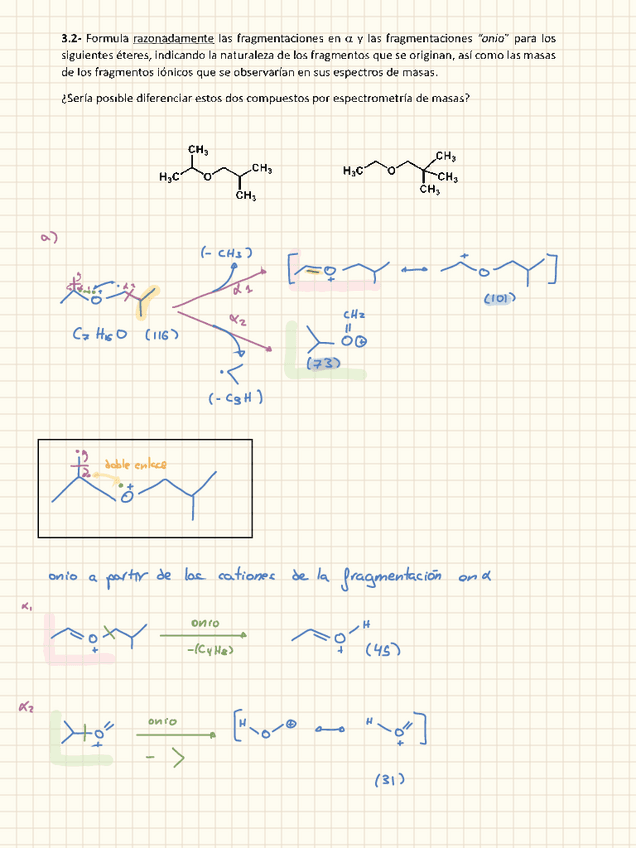 3.2- Formula razonadamente las fragmentaciones en α y las fragmentaciones "onio" para los
siguientes éteres, indicando la naturaleza de los fragmentos que se originan, así como las masas
de los fragmentos iónicos que se observarían en sus espectros de masas.
¿Sería posible diferenciar estos dos compuestos por espectrometría de masas?
CH3
H3C O CH3
CH3
H3C O CH3
CH3
CH3
a)
(- CH3)
α1
O
+
+
O
(101)
O
C7 H16 O (116)
α2
CH2
O ⊕
(73)
(- C3H )
doble enlace
O
+
onio a partir de los cationes de la fragmentación en α
α1
O
+
onio
-(C4H8)
O H
+
(45)
α2
O
+
onio
-
H O ⊕
H O
+
(31)